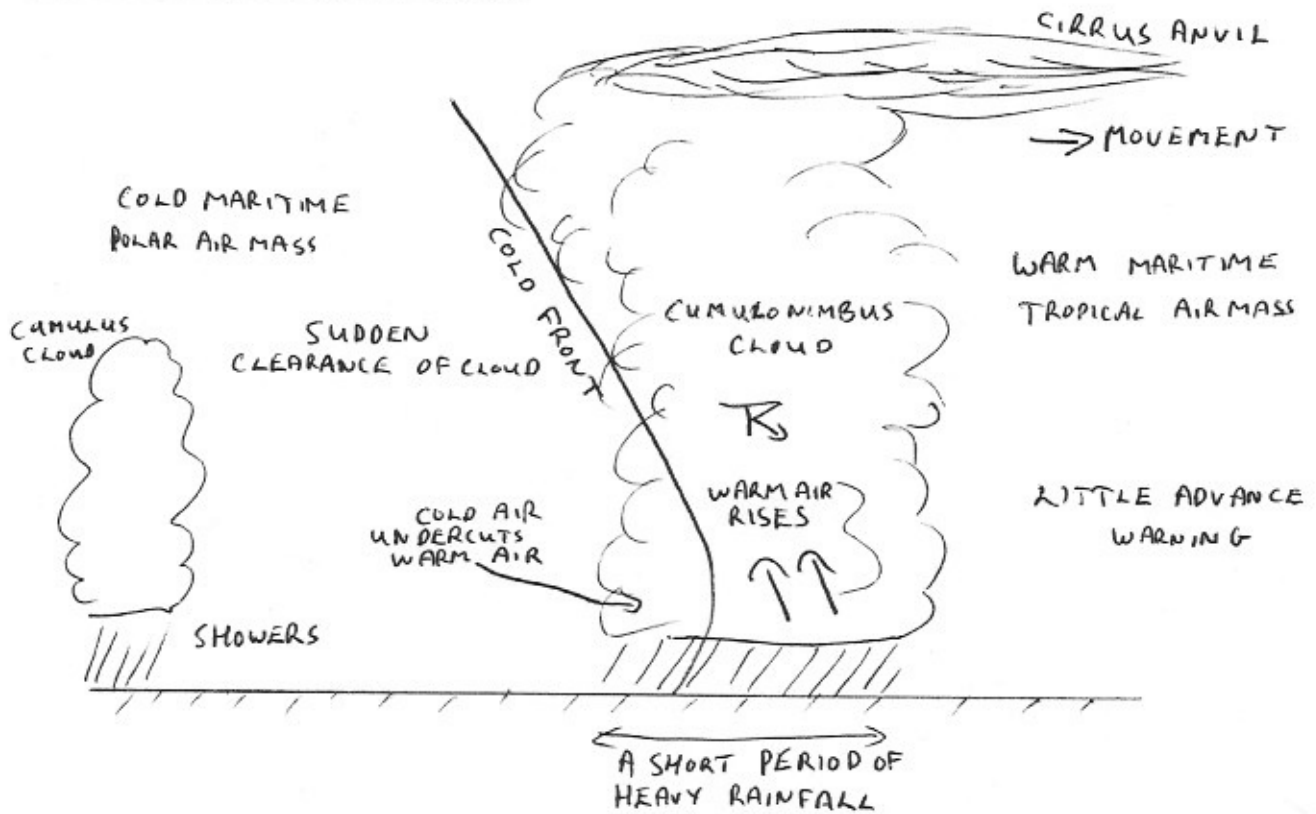 CIRRUS ANVIL
→ MOVEMENT
COLD MARITIME
POLAR AIR MASS
COLD FRONT
WARM MARITIME
TROPICAL AIR MASS
CUMULUS
CLOUD
SUDDEN
CLEARANCE OF CLOUD
CUMULONIMBUS
CLOUD
WARM AIR
RISES
LITTLE ADVANCE
WARNING
COLD AIR
UNDERCUTS
WARM AIR
SHOWERS
A SHORT PERIOD OF
HEAVY RAINFALL